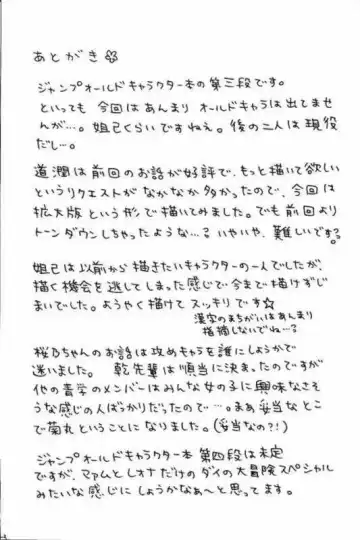 あとがき
ジャンプオールドキャラクター本の第三段です。
といっても 今回はあんまり オールドキャラは出てませ
んが…。妲己くらいですねぇ。後の二人は現役
だし…。
道潤は前回のお話が好評で、もっと描いて欲しい
というリクエストが なかなか多かったので、今回は
拡大版という形で描いてみました。でも前回より
トーンダウンしちゃったような…? いやいや、難しいです?
妲己は以前から描きたいキャラクターの一人でしたが、
描く機会を逃してしまった感じで今まで描けずじ
まいでした。ようやく描けて スッキリです☆
漢字のまちがいはあんまり
指摘しないでね…?
桜乃ちゃんのお話は攻めキャラを誰にしようかで
迷いました。 乾先輩は順当に決まったのですが
他の青学のメンバーはみんな女の子に興味なさそ
うな感じの人ばっかりだったので…。まぁ妥当なとこ
で菊丸ということになりました。(妥当なの?!)
ジャンプオールドキャラクター本 第四段は未定
ですが、マァムとレオナだけのダイの大冒険スペシャル
みたいな感じにしようかなぁ〜と思ってます。